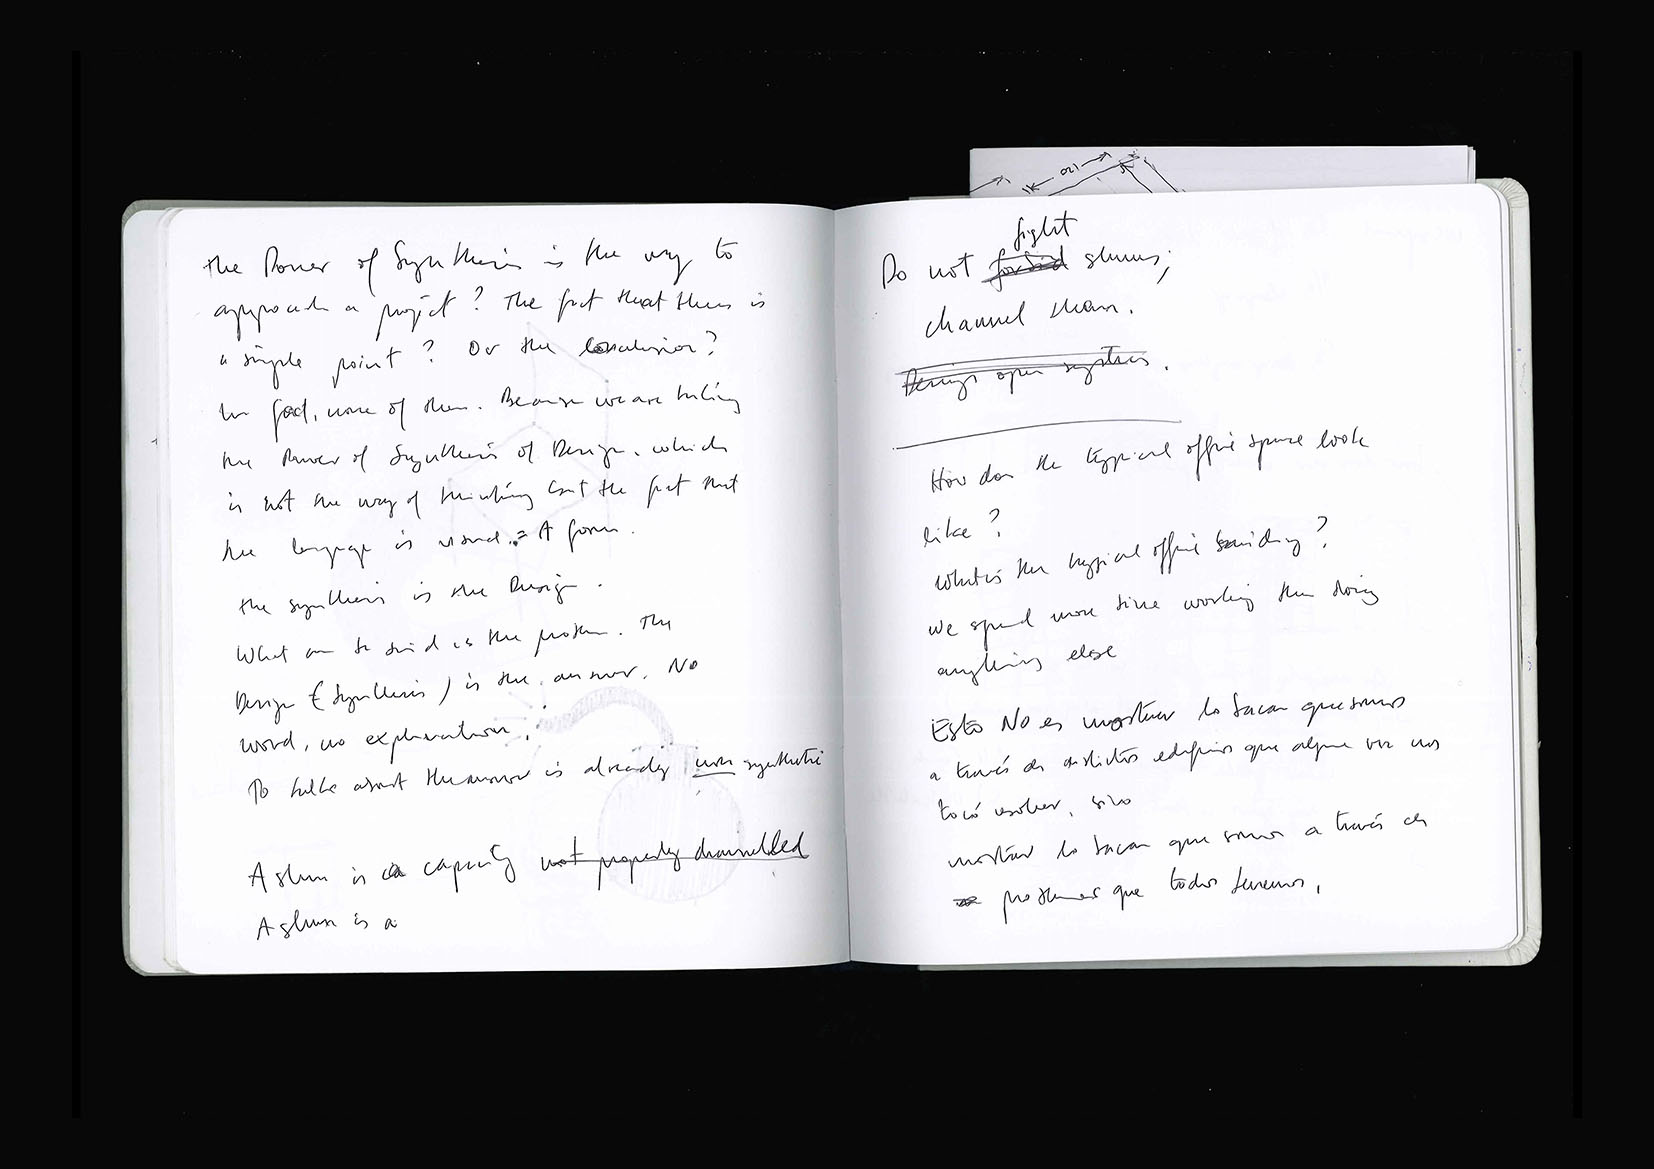 the Power of Synthesis is the way to
approach a project? The fact that there is
a single point? Or the conclusion?
In fact, none of them. Because we are talking
the Power of Synthesis of Design, which
is not the way of thinking but the fact that
the language is visual. = A form.
the synthesis is the Design.
What can be said is the problem. The
Design (Synthesis) is the answer. No
word, no explanation.
To talk about the answer is already non synthetic
A slum is a capacity not properly channelled
A slum is a
120
fight
Do not forbid slums;
channel them.
Design open systems.
How does the typical office space look
like?
What is the typical office building?
We spend more time working than doing
anything else
Esto NO es mostrar lo bacan que somos
a través de distintos edificios que alguna vez nos
tocó resolver, sino
mostrar lo bacan que somos a través de
problemas que todos tenemos.